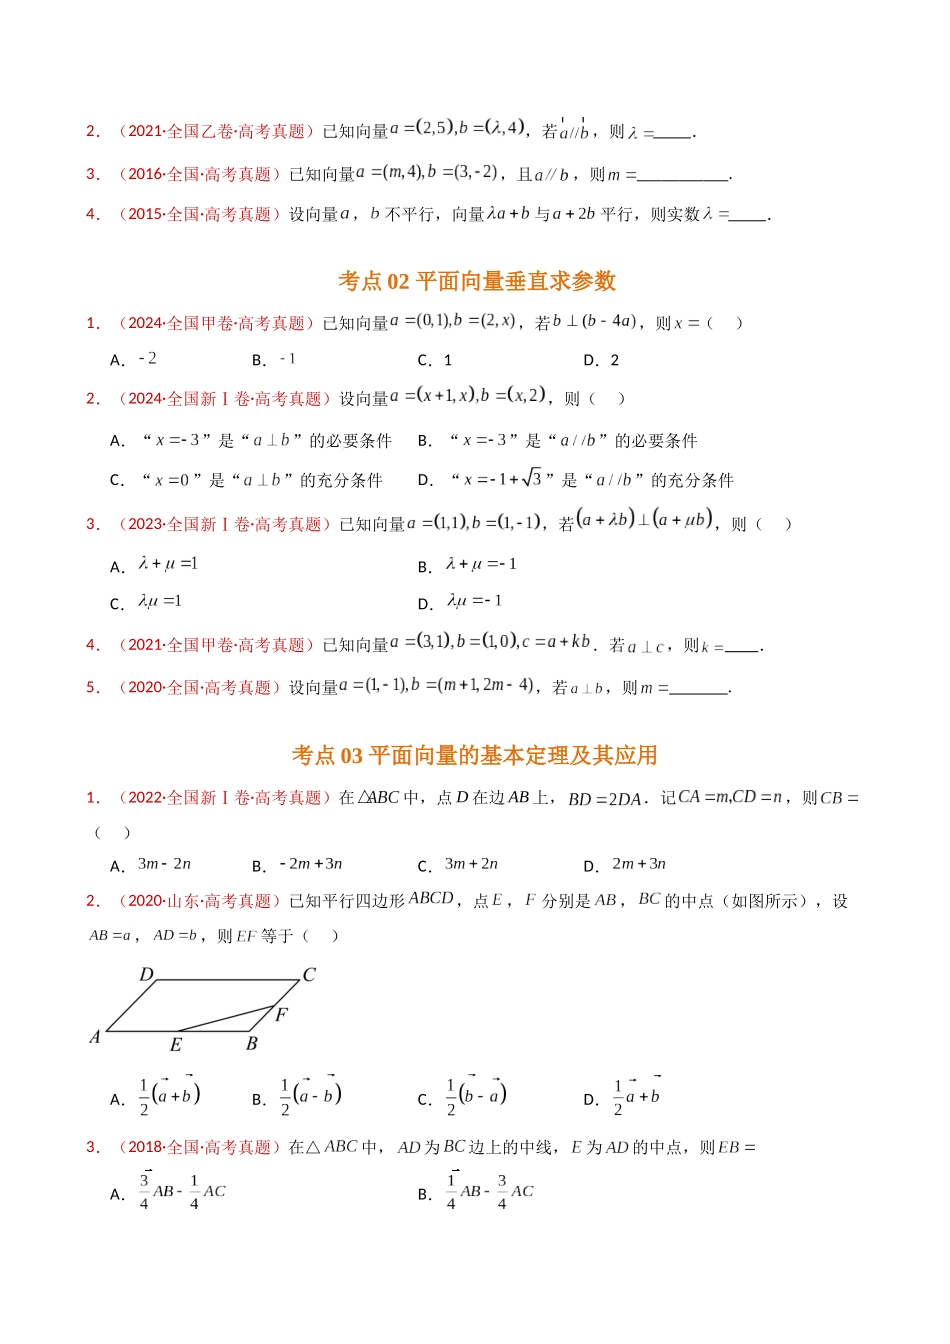 2．（2021·全国乙卷·高考真题）已知向量a=(2,5),b=(λ,4)，若a//b，则λ=____．
3．（2016·全国·高考真题）已知向量a=(m,4),b=(3,-2)，且a∥b，则m=___________.
4．（2015·全国·高考真题）设向量a，b不平行，向量λa+b与a+2b平行，则实数λ=____．
考点 02 平面向量垂直求参数
1．（2024·全国甲卷·高考真题）已知向量a=(0,1),b=(2,x)，若b⊥(b-4a)，则x=（ ）
A．-2 B．-1 C．1 D．2
2．（2024·全国新Ⅰ卷·高考真题）设向量a=(x+1,x),b=(x,2)，则（ ）
A．“x=-3”是“a⊥b”的必要条件 B．“x=-3”是“a//b”的必要条件
C．“x=0”是“a⊥b”的充分条件 D．“x=-1+√3”是“a//b”的充分条件
3．（2023·全国新Ⅰ卷·高考真题）已知向量a=(1,1),b=(1,-1)，若(a+λb)⊥(a+μb)，则（ ）
A．λ+μ=1 B．λ+μ=-1
C．λμ=1 D．λμ=-1
4．（2021·全国甲卷·高考真题）已知向量a=(3,1),b=(1,0),c=a+kb．若a⊥c，则k=____．
5．（2020·全国·高考真题）设向量a=(1,-1),b=(m+1,2m-4)，若a⊥b，则m=_______.
考点 03 平面向量的基本定理及其应用
1．（2022·全国新Ⅰ卷·高考真题）在△ABC中，点D在边AB上，BD=2DA．记CA=m,CD=n，则CB=
（ ）
A．3m-2n B．-2m+3n C．3m+2n D．2m+3n
2．（2020·山东·高考真题）已知平行四边形ABCD，点E，F分别是AB，BC的中点（如图所示），设
AB=a，AD=b，则EF等于（ ）
D C
F
A E B
A．1/2(a+b) B．1/2(a-b) C．1/2(b-a) D．1/2a+b
3．（2018·全国·高考真题）在△ABC中，AD为BC边上的中线，E为AD的中点，则EB=
A．3/4AB-1/4AC B．1/4AB-3/4AC